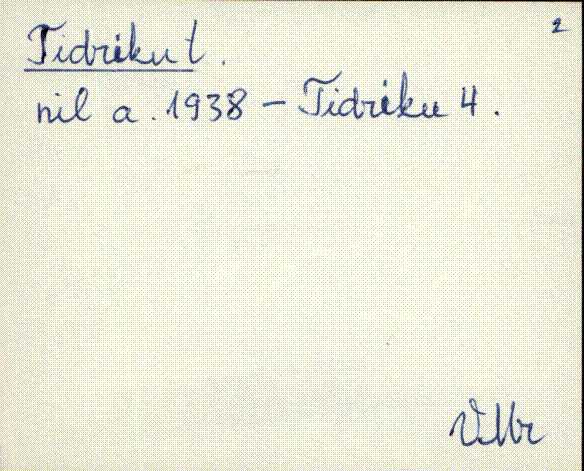 2
Tidriku t.
nil a. 1938 – Tidriku 4.
VMr